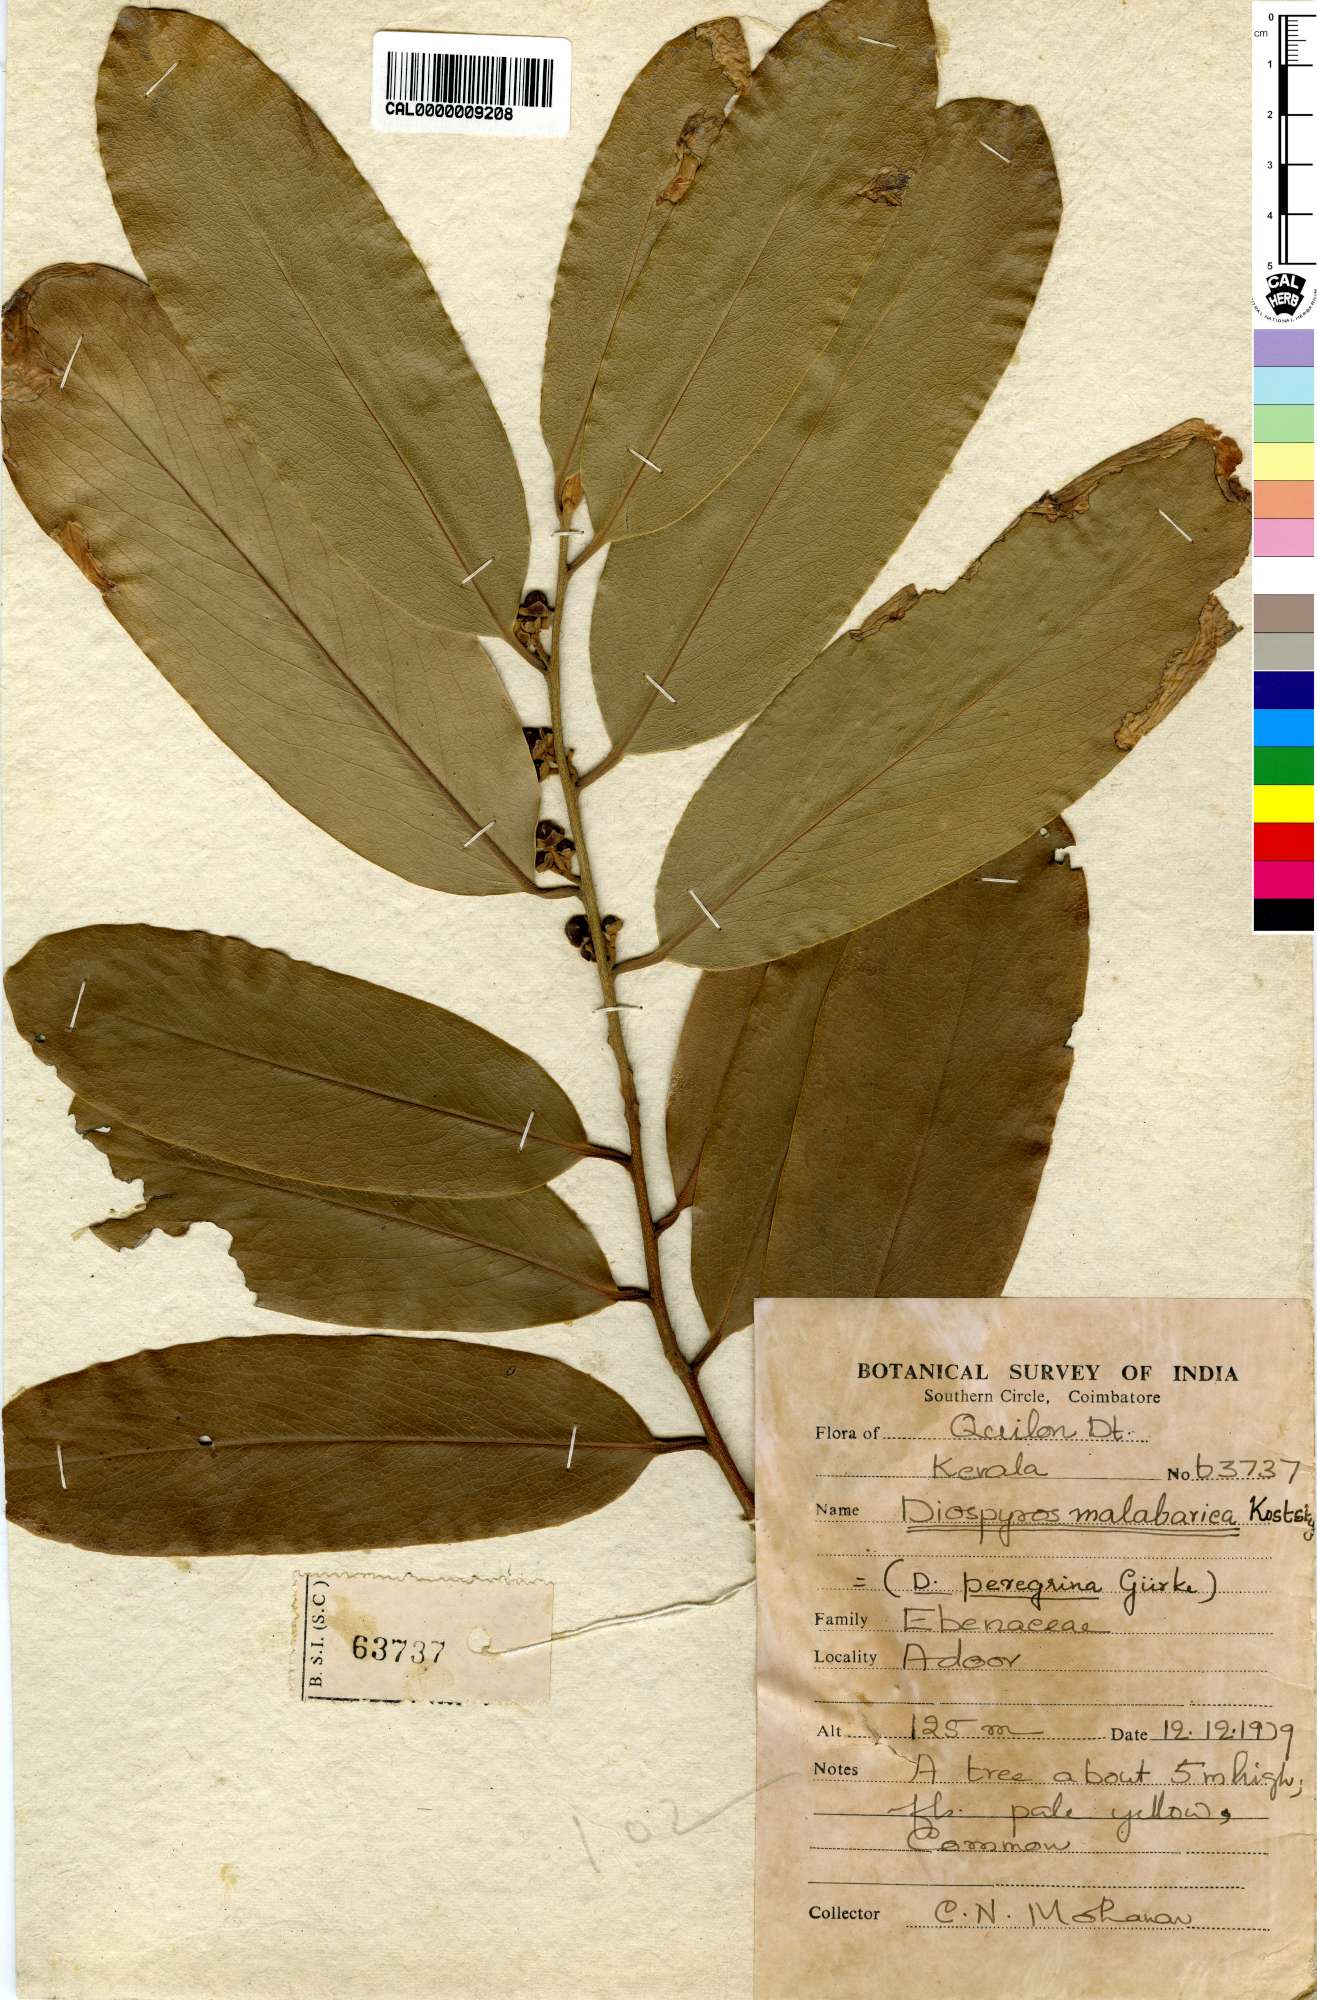 CAL0000009208
0
cm
1
2
3
4
5
CAL
HERB
BOTANICAL SURVEY OF INDIA
Southern Circle, Coimbatore
Flora of Quilon Dt.
Kerala No 63737
Name Diospyros malabarica Kostely
= (D. peregrina Gürke)
Family Ebenaceae
Locality Adoor
Alt 125 m Date 12.12.1979
Notes A tree about 5m high;
fls. pale yellow,
Common
Collector C.N. Mohanan
B. S.I. (S.C)
63737
102